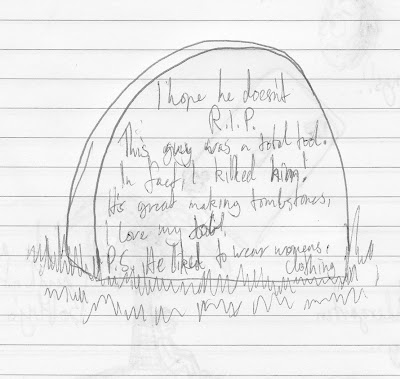 I hope he doesn't
R.I.P.
This guy was a total tool.
In fact, I killed him!
It's great making tombstones,
I love my
P.S. He liked to wear womens
clothing